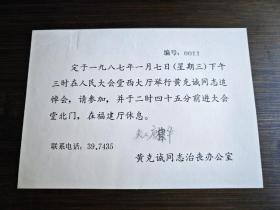 编号：0011
定于一九八七年一月七日（星期三）下午
三时在人民大会堂西大厅举行黄克诚同志追
悼会，请参加，并于二时四十五分前进大会
堂北门，在福建厅休息。
联系电话：39.7435
黄克诚同志治丧办公室